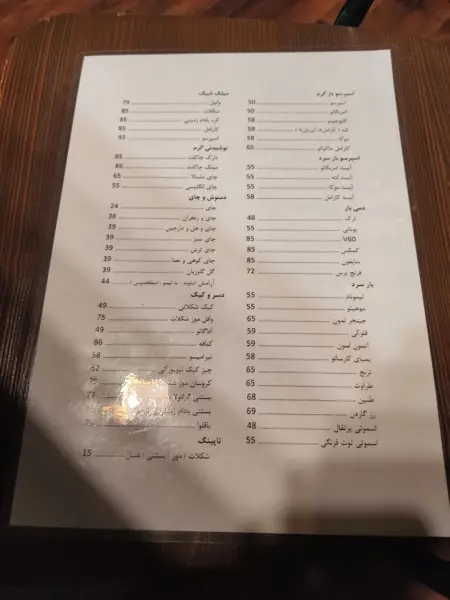 اسپرسو بار گرم
اسپرسو 50
آمریکانو 50
کاپوچینو 58
لته ( کارامل، آیریش ) 58
موکا 58
کارامل ماکیاتو 65
اسپرسو بار سرد
آیسد آمریکانو 55
آیسد لته 55
آیسد موکا 55
آیسد کارامل 58
دمی بار
ترک 48
یونانی 55
V60 85
کمکس 85
سایفون 85
فرنچ پرس 72
بار سرد
لیموناد 55
موهیتو 55
جینجر لمون 65
فلوکی 59
آتمون لمون 59
بمبای کارساتو 58
ترنج 65
طراوت 65
طنین 68
رز گاردن 69
اسموتی پرتقال 48
اسموتی توت فرنگی 55
میلک شیک
وانیل 79
شکلات 85
کره بادام زمینی 85
کارامل 85
اسپرسو 93
نوشیدنی گرم
دارک چاکلت 85
میلک چاکلت 86
چای ماسالا 65
چای انگلیسی 55
دمنوش و چای
چای 24
چای و زعفران 38
چای و هل و دارچین 39
چای سبز 39
چای ترش 39
چای کوهی و نعنا 39
گل گاوزبان 39
آرامش 44
دسر و کیک
کیک شکلاتی 49
وافل موز شکلات 75
آفاگاتو 49
کنافه 86
تیرامیسو 58
چیز کیک نیویورکی 62
کروسان موز 75
بستنی گرانولا 77
بستنی بادام
باقلوا 75
تاپینگ
شکلات / موز / بستنی / عسل 15